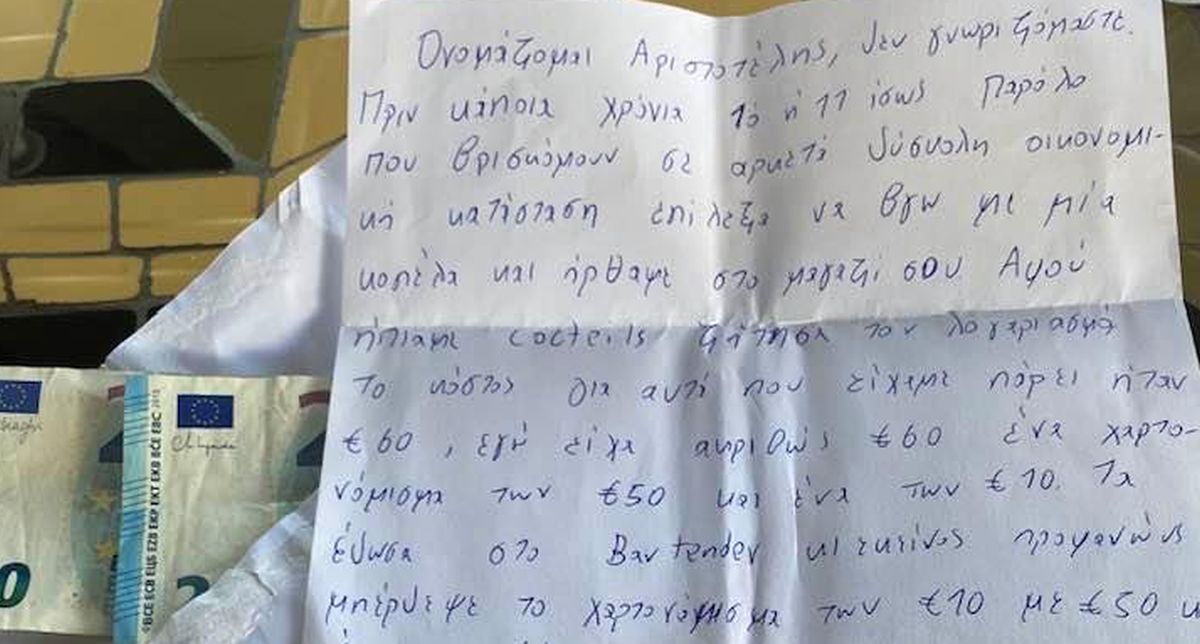 Ονομάζομαι Αριστοτέλης, δεν γνωριζόμαστε.
Πριν κάποια χρόνια 10 ή 11 ίσως Παρόλο
που βρισκόμουν σε αρκετά δύσκολη οικονομι-
κή κατάσταση επίλεξα να βγω με μία
κοπέλα και ήρθαμε στο μαγαζί σου Αφού
ήπιαμε cocteils ζήτησα τον λογαριασμό
Το κόστος για αυτά που είχαμε πάρει ήταν
€60, εγώ είχα ακριβώς €60 ένα χαρτο-
νόμισμα των €50 και ένα των €10. Τα
έδωσα στο Bartender κι εκείνος προφανώς
μπέρδεψε το χαρτονόμισμα των €10 με €50 κ
BCE ECB EZB EKP EKT EKB BCE EBC
0
2